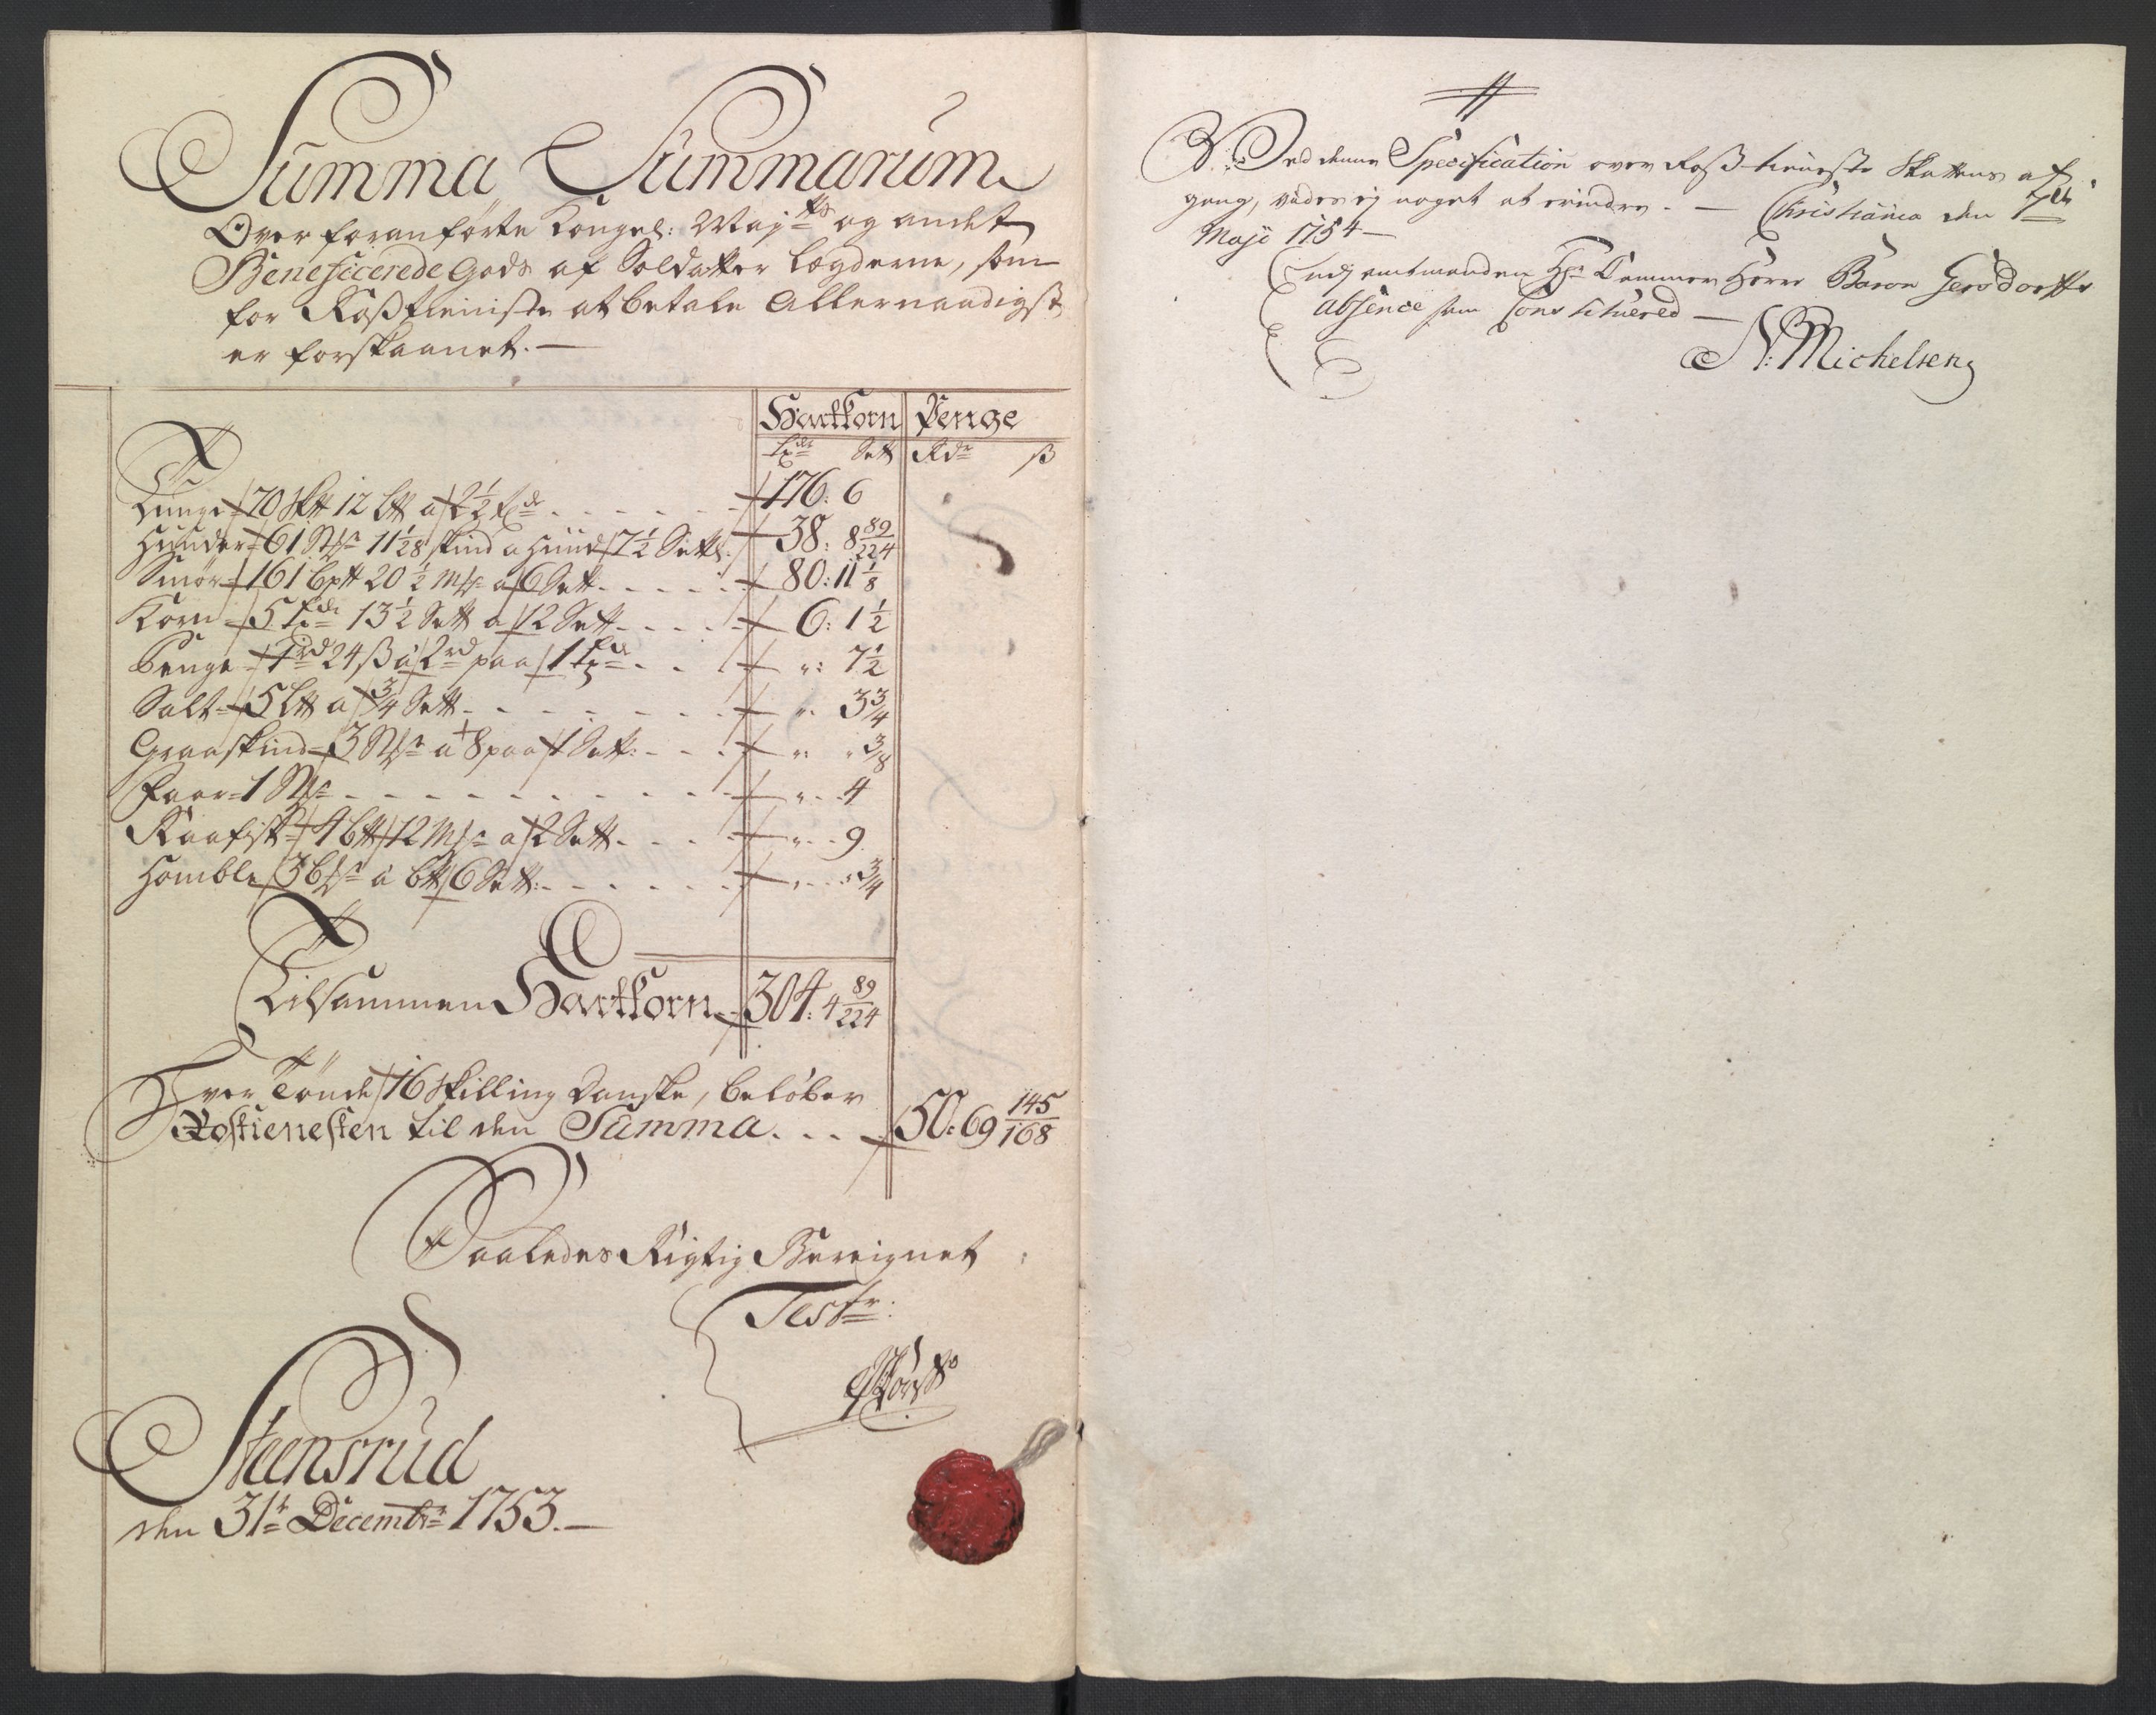 Summa Summarum
Over foranførte Kongel: Maj:ts og andet
Beneficerede Gods af Soldatter Lægderne, som
for Rosstieniste at betale Allernaadigst
er forskaanet.—
Hartkorn Penge
Tdr Sett Rdr ß
Tunge 70 Sktt 12 Ltt a 2½ Td 176: 6
Huuder 61 St 11 1/28 skind a Huud 7½ Sett. 38: 8 89/224
Smør 161 Bptt 20½ Mk a 6 Sett 80: 11 1/8
Korn 5 Tdr 13½ Sett a 12 Sett 6: 1½
Penge 1 rd 24 ß a 2 rd paa 1 Td ": 7½
Salt 5 Ltt a ¾ Sett " 3¾
Graaskind 3 St a 8 paa 1 Sett: " " 3/8
Faar 1 St " 4
Raafisk 4 btt 12 Mk a 2 Sett " 9
Homble 3 b a btt 6 Sett: " " ¾
Tilsammen Hartkorn 304: 4 89/224
Hver Tønde 16 Skilling Danske, beløber
Rostienesten til den Summa 50: 69 145/168
Saaledes Rigtig Bereignet
Test:
Steensrud
den 31t Decembr 1753.—
Ved denne Specification over Ross-tieneste Skattens af-
gang, vides ej noget at erindre. — Christiania den 7de
Maji 1754—
udj amtmanden Hr Cammer Herre Baron Gersdorffs
absence som Constituered —
N: Michelsen